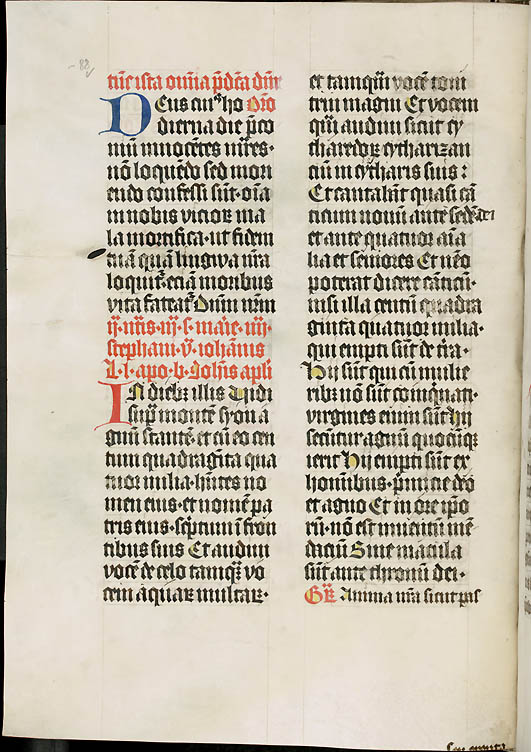 88
tūc ista om̄ia p̄dc̄a dn̄r
Deus cui⁹ ho Oŕo
dierna die p̄co
niū innocētes m̄res·
nō loquēdo sed mori
endo confessi sūt· oīa
in nobis vicioꝝ ma
la mortifica· ut fidem
tuā quā lingwa nr̄a
loquit̄· eciā moribus
vita fateat̄ Dn̄m nr̄m
ij· nītis iij· s· marie· iiij·
stephani· v· iohānis
L· l· apo· b· Ioh̄is apl̄i
In dieb; illis Vidi
sup̄ montē syon a
gnū stantē· et cū eo cen
tum quadragīta qua
tuor milia· hn̄tes no
men eius· et nomē pa
tris eius· scptum ī fron
tibus suis Et audiui
vocē de celo tamq̄; vo
cem aquaꝝ multaꝝ·
et tamq̄ vocē toni
trui magni Et vocem
quā audiui sicut cy
tharedoꝝ cytharizan
ciū in cytharis suis:
Et cantabāt quasi cā
ticum nouū ante sedē dei
et ante quatuor aīa
lia et seniores Et nēo
poterat dicere cāticū·
nisi illa centū quadra
ginta quatuor milia·
qui empti sūt de t̄ra·
Hij sūt qui cū mulie
rib; nō sūt coinq̄nati·
virgines enim sūt Hij
secūtur agnū quocūq;
ierit Hij empti sūt ex
hominibus· p̄micie deo
et agno Et in ore ip̄o
rū· nō est inuentū mē
daciū Sine macula
sūt ante thronū dei·
Gr̄ Anima nr̄a sicut pas